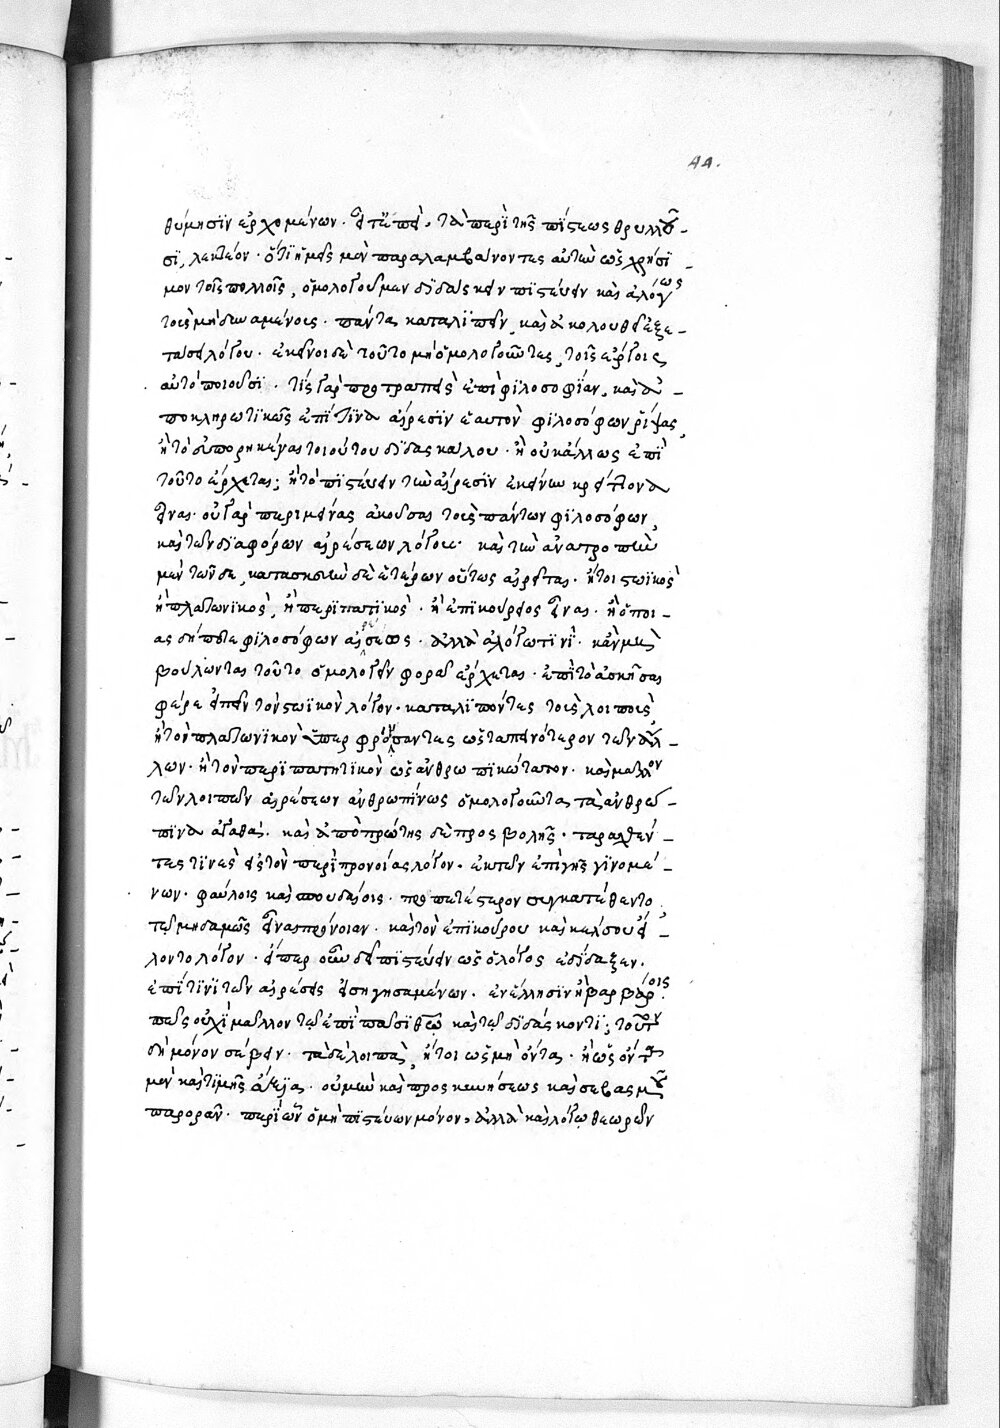 44.
θύμησϊν ἐρχομένων. εἶτ' ἐπεὶ, τὰ περὶ τῆς πίστεως θρυλλοῦ-
σϊ, λεκτέον. ὅτι ἡμεῖς μὲν παραλαμβάνοντες αὐτὴν ὡς χρήσϊ-
μον τοῖς πολλοῖς, ὁμολογοῦμεν διδάσκειν πιστεύειν καὶ ἀλόγως
τοὺς μὴ δυναμένους. πάντα καταλϊπεῖν, καὶ ἀκολουθεῖν ἐξε-
τάσει λόγου. ἐκεῖνοι δὲ τοῦτο μὴ ὁμολογοῦντες, τοῖς ἔργοις
αὐτὸ ποιοῦσϊ. τίς γὰρ προτραπεὶς ἐπὶ φϊλοσοφϊαν, καὶ ἀ-
ποκληρωτϊκῶς ἐπί τϊνα αἵρεσϊν ἑαυτὸν φϊλοσόφων ῥίψας,
ἢ τῷ εὐπορηκέναι τοιούτου διδασκάλου. ἢ οὐκ ἄλλως ἐπὶ
τοῦτο ἔρχεται; ἢ τῷ πϊστεύειν τὴν αἵρεσϊν ἐκείνην κρείττονα
εἶναι. οὐ γὰρ περιμείνας ἀκοῦσαι τοὺς πάντων φϊλοσόφων,
καὶ τῶν διαφόρων αἱρέσεων λόγους. καὶ τὴν ἀνατροπὴν
μὲν τῶνδε, κατασκευὴν δὲ ἑτέρων οὕτως αἱρεῖται. ἤτοι στωϊκὸς
ἢ πλατωνϊκὸς, ἢ περϊπατητϊκὸς. ἢ ἐπικούρειος εἶναι. ἢ ὁποι-
ασδήποτε φϊλοσόφων αἱρέσεως. ἀλλὰ ἀλόγῳ τϊνὶ. κἂν μὴ
βούλωνται τοῦτο ὁμολογεῖν φορᾷ ἔρχεται. ἐπὶ τὸ ἀσκῆσαι
φέρε εἰπεῖν τὸν στωϊκὸν λόγον. καταλϊπόντες τοὺς λοιποὺς
ἢ τὸν πλατωνϊκὸν ὑπερφρονήσαντες ὡς ταπεινότερον τῶν ἄλ-
λων. ἢ τὸν περϊπατητϊκὸν ὡς ἀνθρωπϊκώτατον. καὶ μᾶλλον
τῶν λοιπῶν αἱρέσεων ἀνθρωπίνως ὁμολογοῦντα τὰ ἀνθρώ-
πϊνα ἀγαθὰ. καὶ ἀπὸ πρώτης δὲ προσβολῆς. ταραχθέν-
τες τϊνὲς εἰς τὸν περὶ προνοίας λόγον. ἐκ τῶν ἐπὶ γῆς γϊνομέ-
νων. φαύλοις καὶ σπουδαίοις. προπετέστερον συγκατέθεντο
τῷ μηδαμῶς εἶναι πρόνοιαν. καὶ τὸν ἐπικούρου καὶ κέλσου εἵ-
λοντο λόγον. εἴπερ οὖν δεῖ πϊστεύειν ὡς ὁ λόγος ἐδίδαξεν.
ἐπί τϊνϊ τῶν αἱρέσεις εἰσηγησαμένων. ἐν ἕλλησϊν ἢ βαρβάροις
πῶς οὐχϊ μᾶλλον τῷ ἐπὶ πᾶσϊ θεῷ καὶ τῷ διδάσκοντϊ; τοῦτον
δεῖ μόνον σέβειν. τὰ δὲ λοιπὰ, ἤτοι ὡς μὴ ὄντα. ἢ ὡς ὄντα
μὲν καὶ τϊμῆς ἄξϊα. οὐ μὴν καὶ προσκυνήσεως καὶ σεβασμοῦ
παρορᾶν. περϊ ὧν ὁ μὴ πϊστεύων μόνον, ἀλλὰ καὶ λόγῳ θεωρῶν